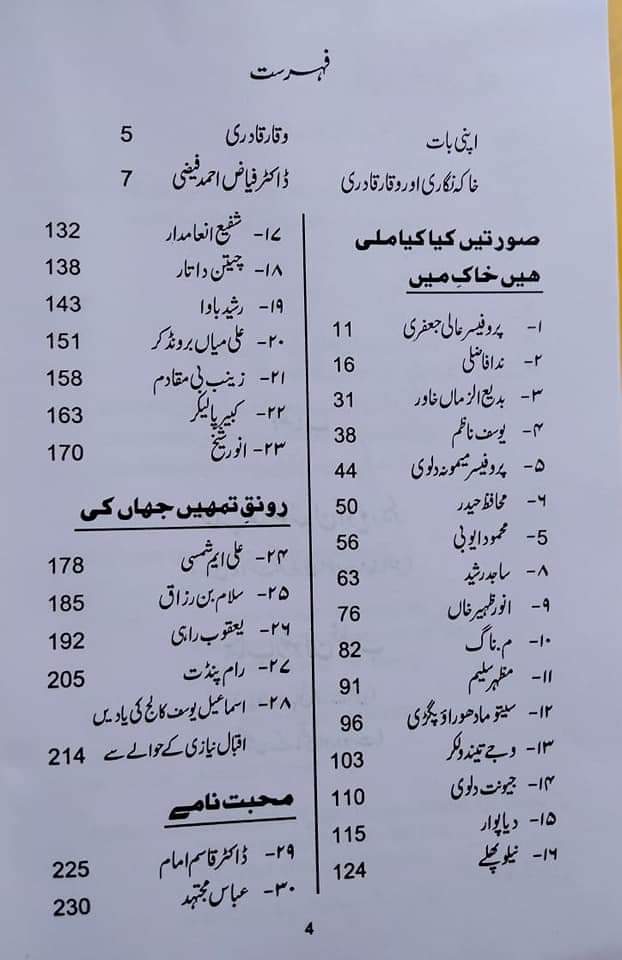 فہرست
اپنی بات وقار قادری 5
خاکہ نگاری اور وقار قادری ڈاکٹر فیاض احمد فیضی 7
صورتیں کیا کیا ملی
ھیں خاک میں
۱- پروفیسر عالی جعفری 11
۲- ندا فاضلی 16
۳- بدیع الزماں خاور 31
۴- یوسف ناظم 38
۵- پروفیسر میمونہ دلوی 44
۶- محافظ حیدر 50
5- محمود ایوبی 56
۸- ساجد رشید 63
۹- انور ظہیر خاں 76
۱۰- م۔ ناگ 82
۱۱- مظہر سلیم 91
۱۲- سیتو مادھوراؤ پگڑی 96
۱۳- وجے تیندولکر 103
۱۴- جیونت دلوی 110
۱۵- دیا پوار 115
۱۶- نیلو پھلے 124
۱۷- شفیع انعامدار 132
۱۸- چیتن داتار 138
۱۹- رشید باوا 143
۲۰- علی میاں برونڈکر 151
۲۱- زینب بی مقادم 158
۲۲- کبیر پالیکر 163
۲۳- انور شیخ 170
رونقِ تمھیں جھاں کی
۲۴- علی ایم شمسی 178
۲۵- سلام بن رزاق 185
۲۶- یعقوب راہی 192
۲۷- رام پنڈت 205
۲۸- اسماعیل یوسف کالج کی یادیں
اقبال نیازی کے حوالے سے 214
محبت نامے
۲۹- ڈاکٹر قاسم امام 225
۳۰- عباس مجتہد 230
4